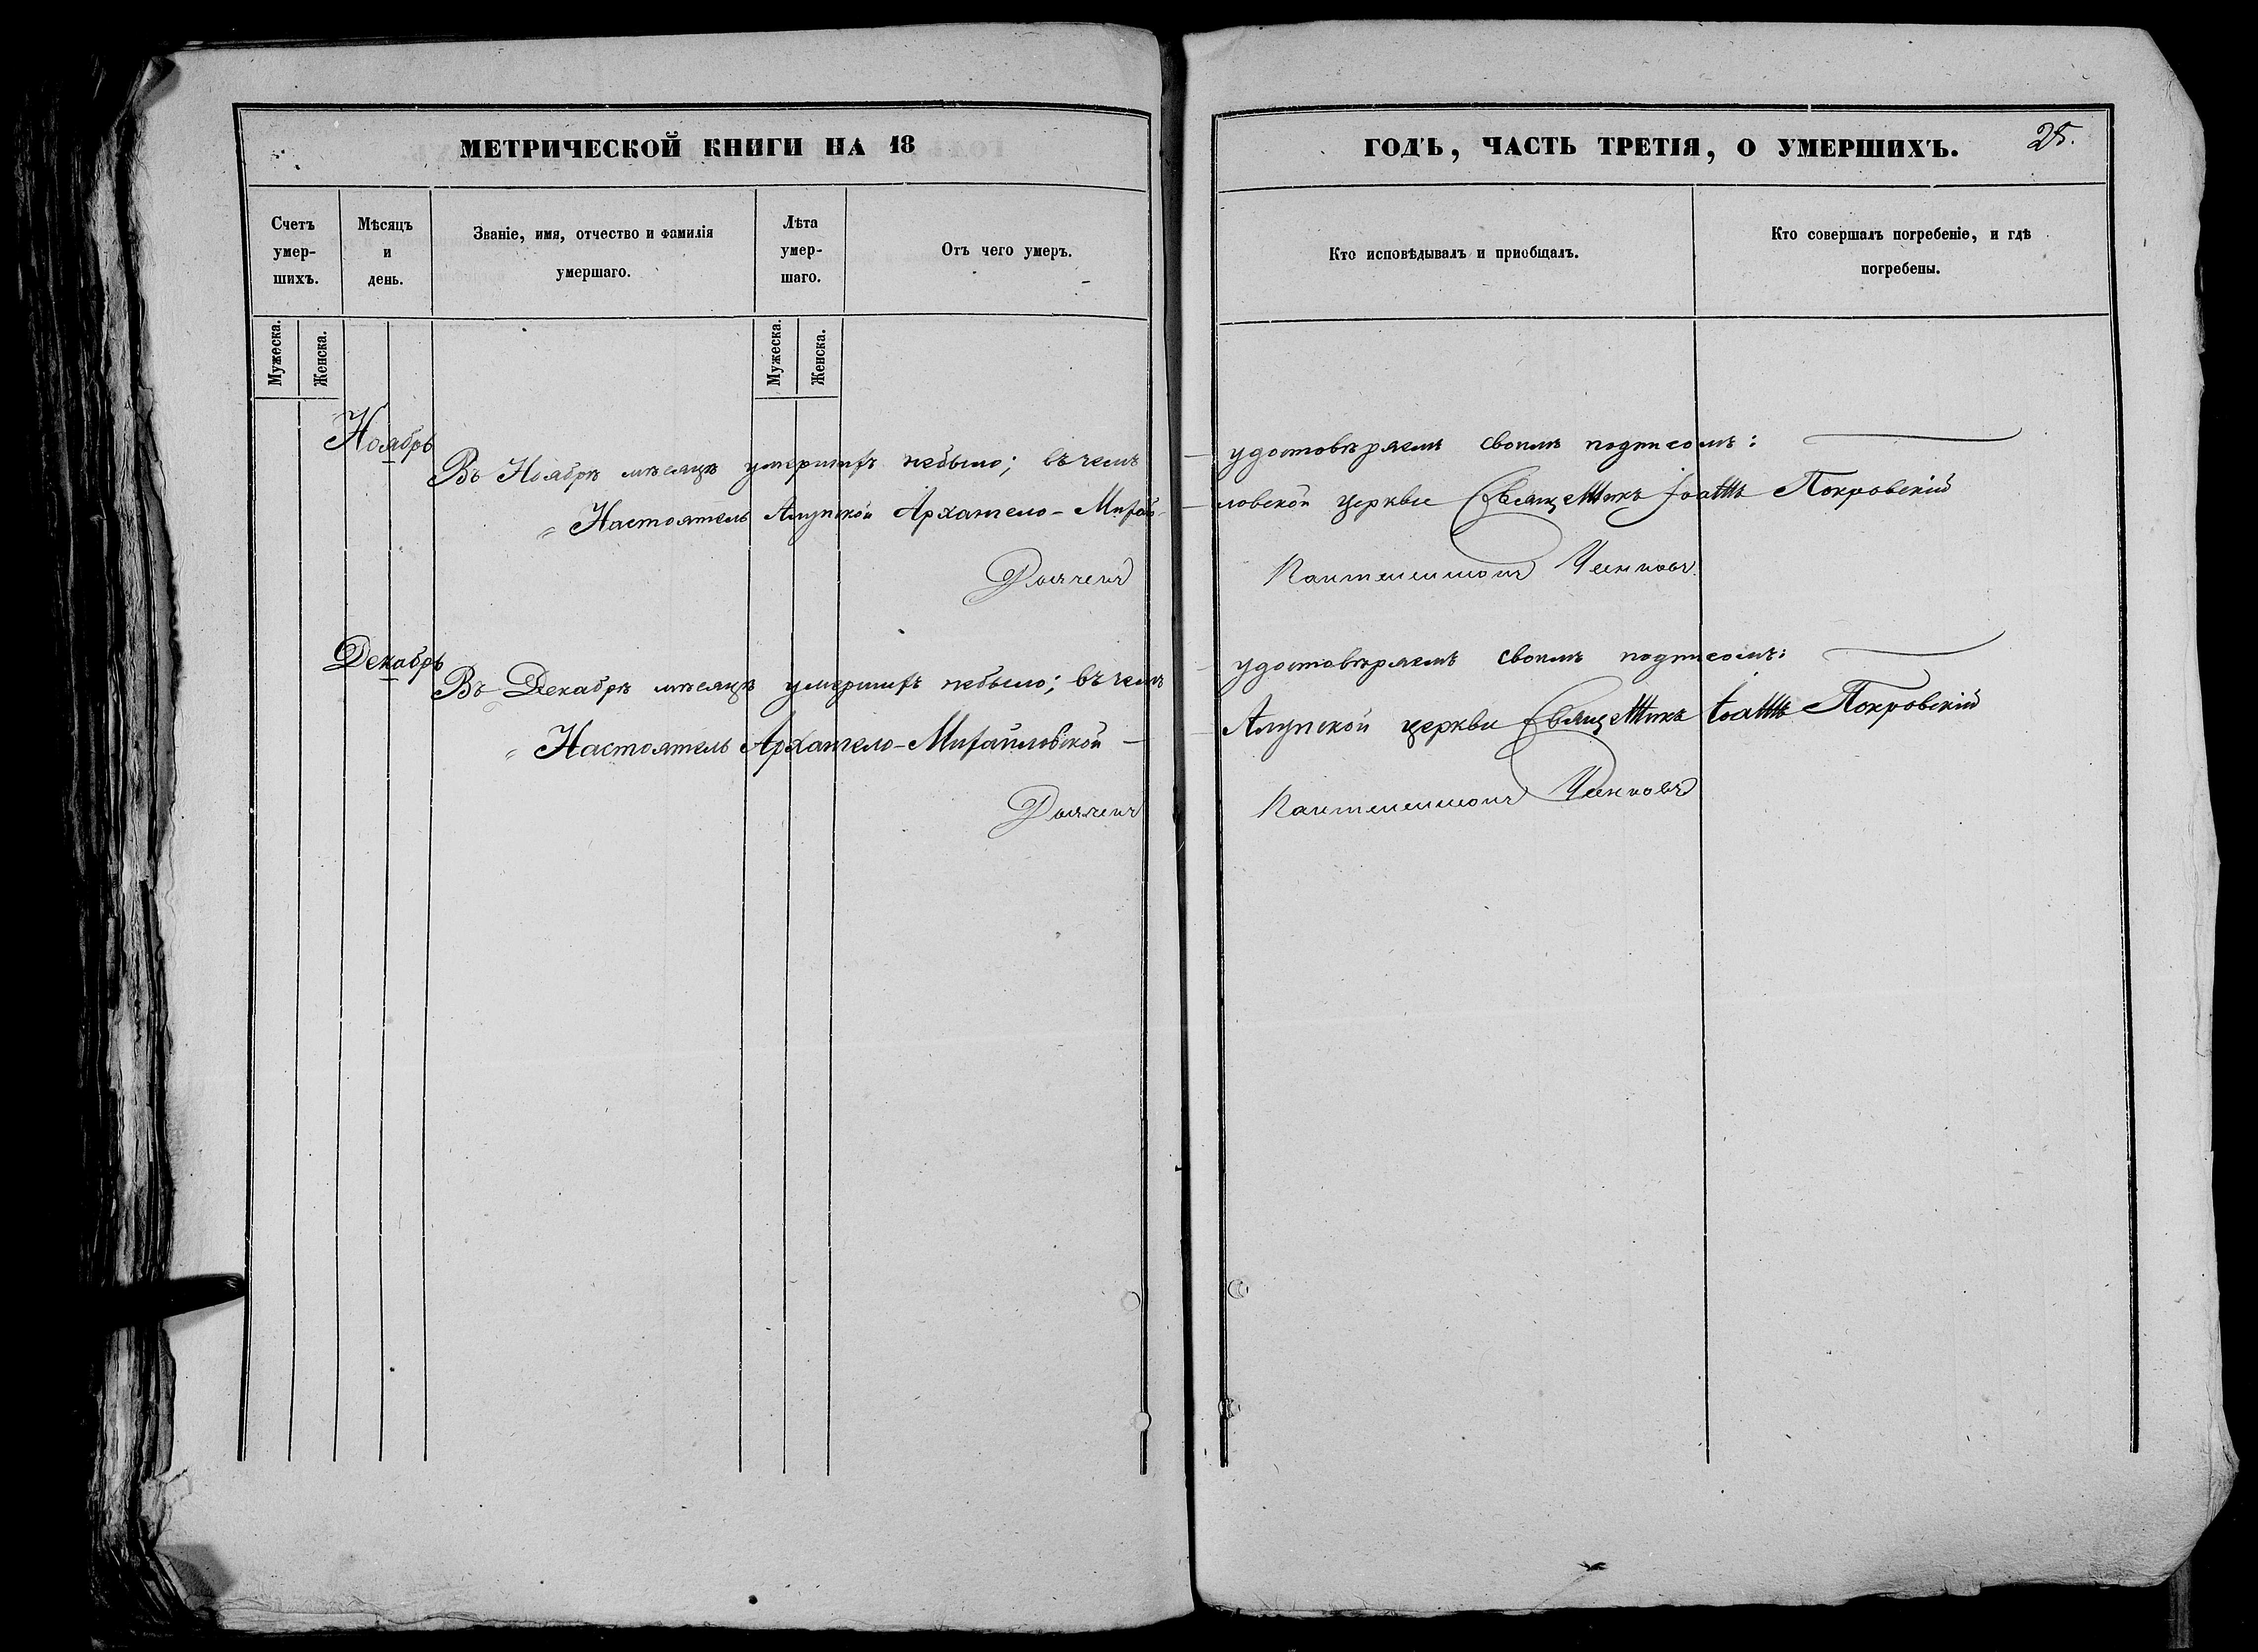 МЕТРИЧЕСКОЙ КНИГИ НА 18 ГОДЪ, ЧАСТЬ ТРЕТІЯ, О УМЕРШИХЪ. 25.
Счетъ умер-шихъ.
Мѣсяцъ и день.
Званіе, имя, отчество и фамилія умершаго.
Лѣта умер-шаго.
Отъ чего умеръ.
Кто исповѣдывалъ и приобщалъ.
Кто совершалъ погребеніе, и гдѣ погребены.
Мужеска. Женска. Мужеска. Женска.
Ноябрь
Въ Ноябрѣ мѣсяцѣ умершихъ небыло; въ чемъ удостовѣряемъ своимъ подписомъ:
Настоятель Алупской Архангело-Михай-ловской церкви Священникъ Іоаннъ Покровскій
Декабрь
Въ Декабрѣ мѣсяцѣ умершихъ небыло; въ чемъ удостовѣряемъ своимъ подписомъ:
Настоятель Архангело-Михайловской Алупской церкви Священникъ Іоаннъ Покровскій